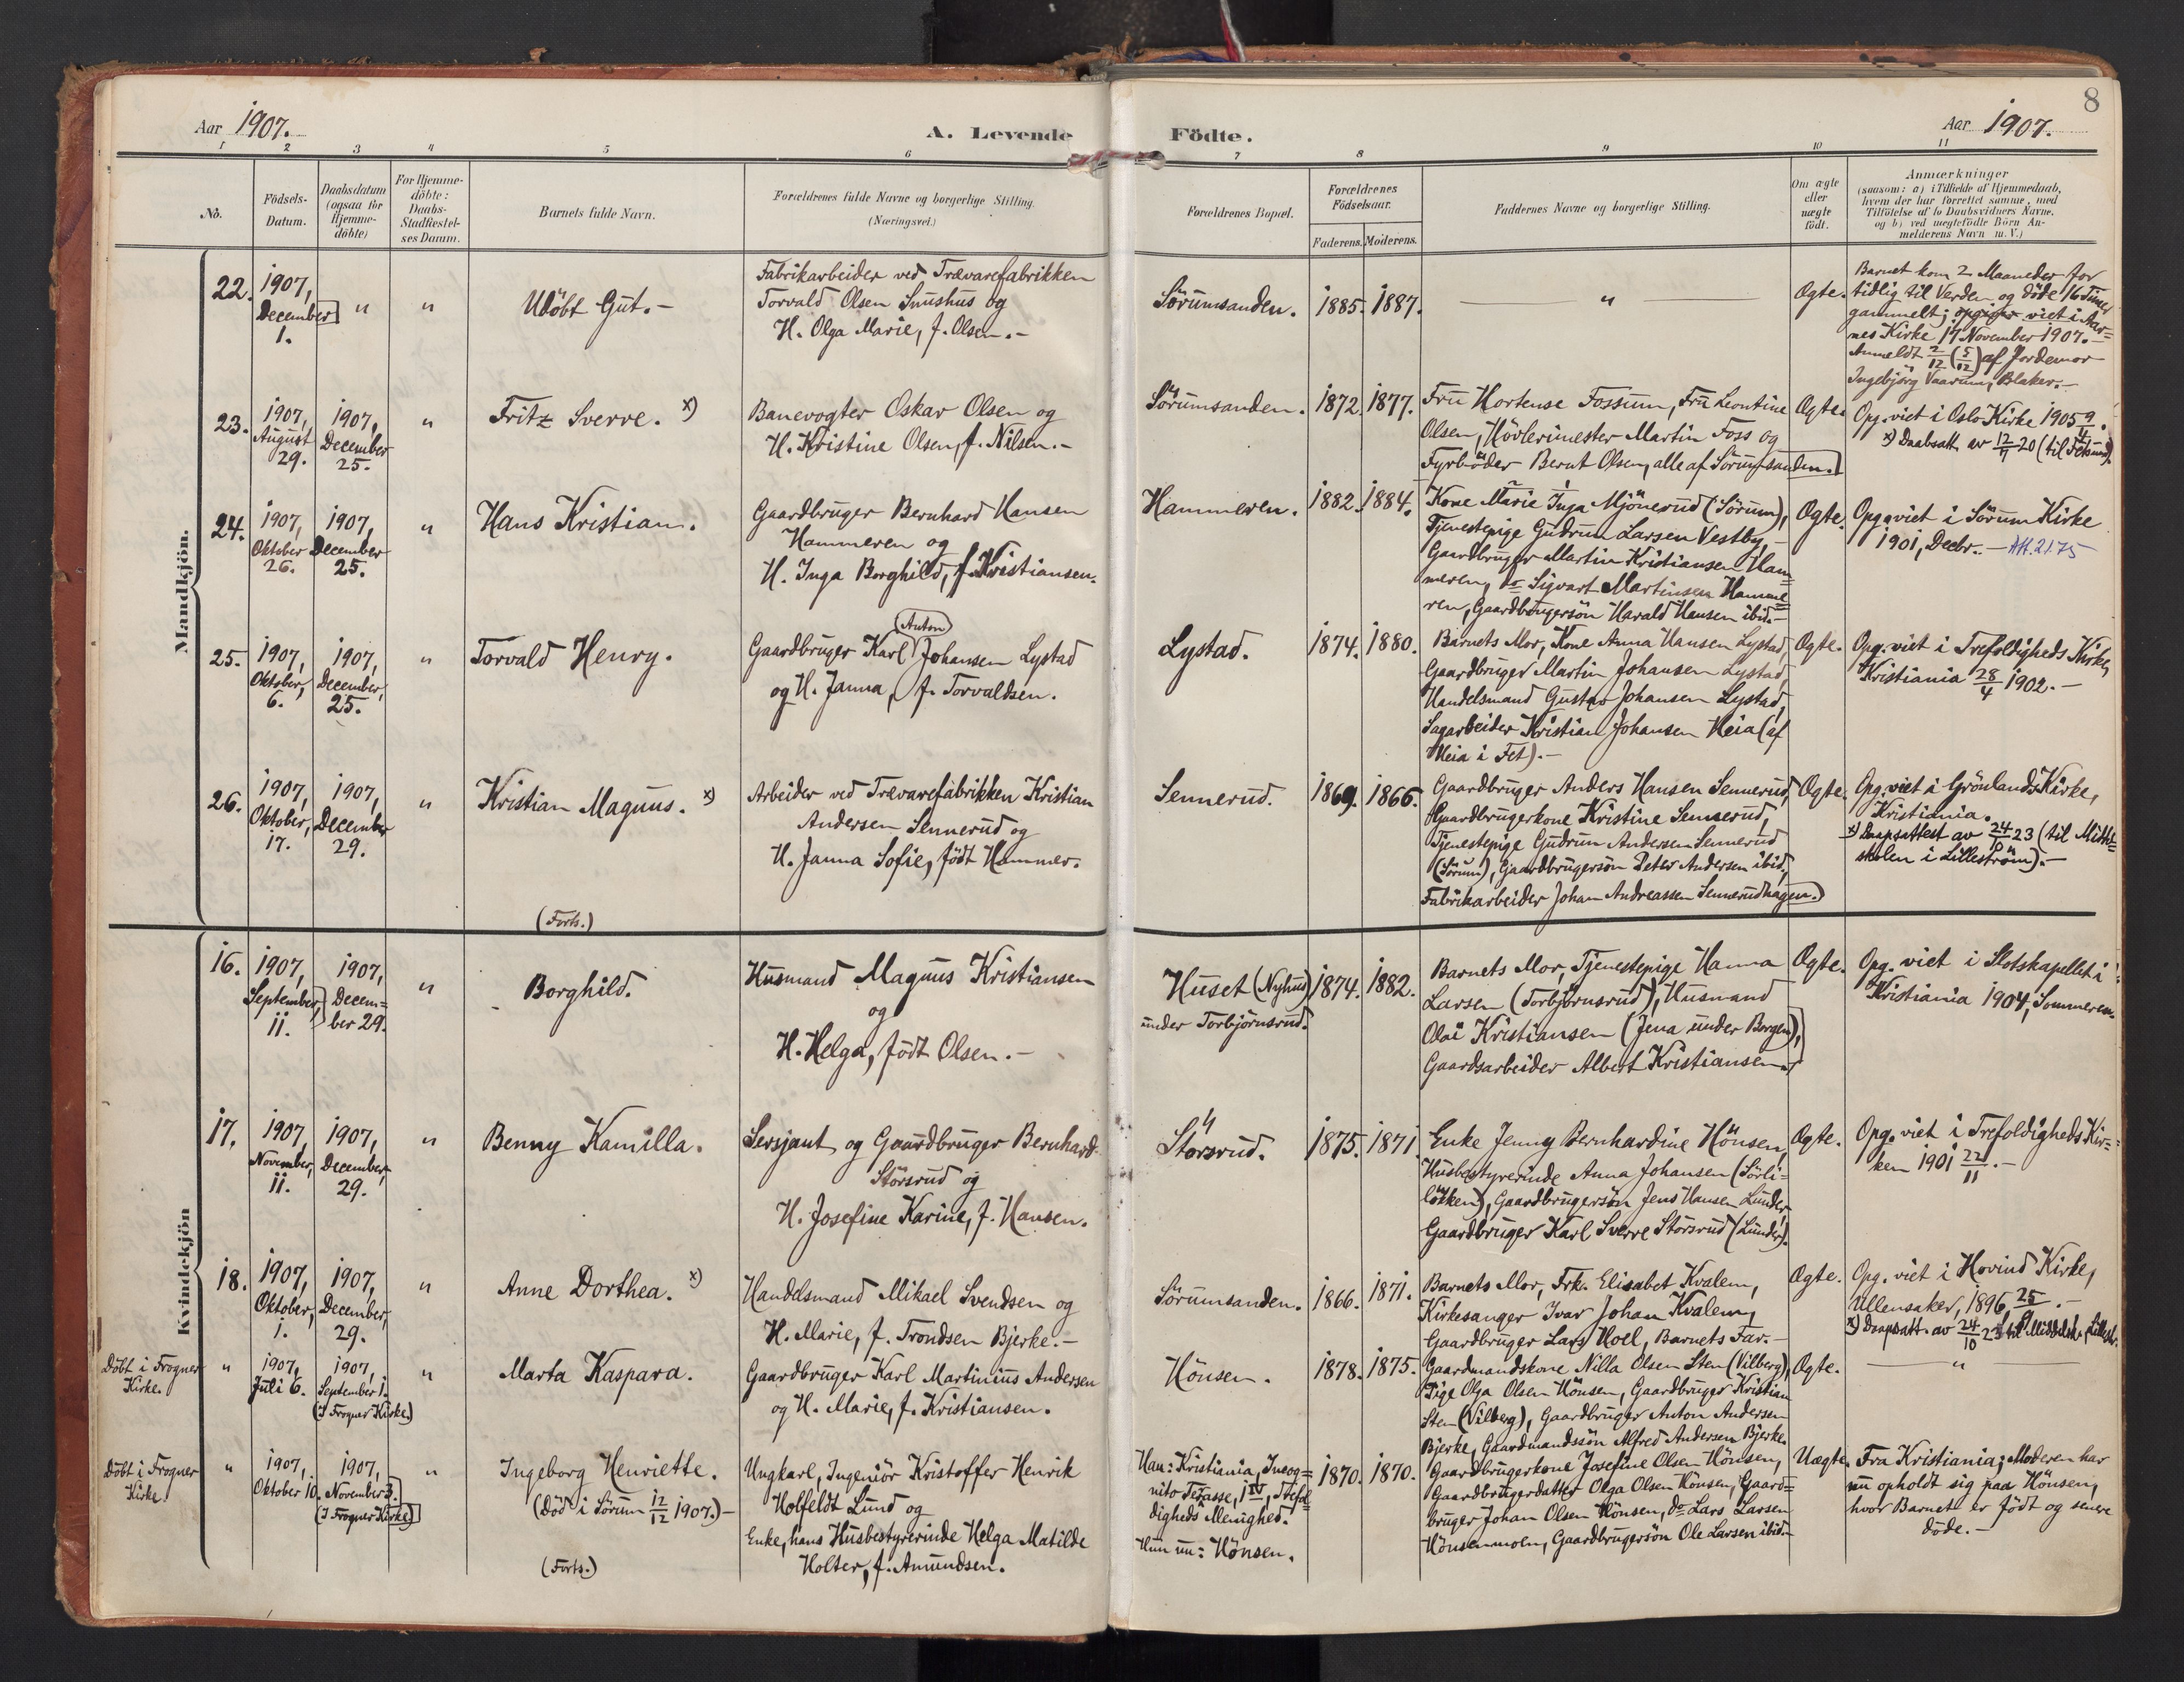 8
Aar 1907.
A. Levende Födte.
Aar 1907.
1 2 3 4 5 6 7 8 9 10 11
No.
Födsels-
Datum.
Daabsdatum
(ogsaa for
Hjemme-
döbte)
For Hjemme-
döbte:
Daabs-
Stadfæstel-
ses Datum.
Barnets fulde Navn.
Forældrenes fulde Navne og borgerlige Stilling.
(Næringsvei.)
Forældrenes Bopæl.
Forældrenes
Födselsaar.
Faderens. Moderens.
Faddernes Navne og borgerlige Stilling.
Om ægte
eller
uægte
födt.
Anmærkninger
(saasom: a) i Tilfælde af Hjemmedaab,
hvem der har forrettet samme, med
Tilföielse af to Daabsvidners Navne,
og b) ved uægtefödte Börn An-
melderens Navn m. V.)
Mandkjön.
22.
1907,
December
1.
"
"
Udöbt Gut. -
Fabrikarbeider ved Trævarefabrikken
Torvald Olsen Snushus og
H. Olga Marie, f. Olsen. -
Sörumsanden.
1885. 1887.
"
Ægte.
Barnet kom 2 Maaneder for
tidlig til Verden og döde 16 Timer
gammelt; opgiver viet i Aar=
nes Kirke 17 November 1907. -
Anmeldt 2/12 (5/12) af Jordemor
Ingebjörg Vaarum, Blaker. -
23.
1907,
August
29.
1907,
December
25.
"
Fritz Sverre. x)
Banevogter Oskar Olsen og
H. Kristine Olsen, f. Nilsen. -
Sörumsanden.
1872. 1877.
Fru Hortense Fossum, Fru Leontine
Olsen, Hövlerimester Martin Foss og
Fyrböder Bernt Olsen, alle af Sörumsanden.
Ægte.
Opg. viet i Oslo Kirke 1905 9/4.
x) Daabsatt. av 12/7 20 (til Fetsund).
24.
1907,
Oktober
26.
1907,
December
25.
"
Hans Kristian.
Gaardbruger Bernhard Hansen
Hammeren og
H. Inga Borghild, f. Kristiansen.
Hammeren.
1882. 1884.
Kone Marie Inga Mjönerud (Sörum),
Tjenestepige Gudrun Larsen Vestby, -
Gaardbruger Martin Kristiansen Ham=
meren, do Sigvart Martinsen Hamme=
ren, Gaardbrugersön Harald Hansen ibid. -
Ægte.
Opg. viet i Sörum Kirke
1901, Decbr. - Att. 21.75
25.
1907,
Oktober,
6.
1907,
December,
25.
"
Torvald Henry.
(Anton)
Gaardbruger Karl Johansen Lystad
og H. Janna, f. Torvaldsen.
Lystad.
1874. 1880.
Barnets Mor, Kone Anna Hansen Lystad,
Gaardbruger Martin Johansen Lystad,
Handelsmand Gustav Johansen Lystad,
Sagarbeider Kristian Johansen Heia (af
Heia i Fet). -
Ægte.
Opg. viet i Trefoldigheds Kirke,
Kristiania 28/4 1902. -
26.
1907,
Oktober,
17.
1907,
December
29.
"
Kristian Magnus. x)
Arbeider ved Trævarefabrikken Kristian
Andersen Sennerud og
H. Janna Sofie, födt Hammer.
(Forts.)
Sennerud.
1869. 1866.
Gaardbruger Anders Hansen Sennerud,
Gaardbrugerkone Kristine Sennerud,
Tjenestepige Gudrun Andersen Sennerud
(Sörum), Gaardbrugersön Peter Andersen ibid.,
Fabrikarbeider Johan Andreassen Sennerudhagen.)
Ægte.
Opg. viet i Grönlands Kirke,
Kristiania.
x) Daapsattest av 24/10 23 (til Middel=
skolen i Lilleström). -
Kvindekjön
16.
1907,
September,
11.
1907,
Decem=
ber 29.
"
Borghild.
Husmand Magnus Kristiansen
og
H. Helga, födt Olsen. -
Huset (Nyhus)
under Torbjörnsrud.
1874. 1882.
Barnets Mor, Tjenestepige Hanna
Larsen (Torbjörnsrud), Husmand
Olai Kristiansen (Jena under Borgen),
Gaardsarbeider Albert Kristiansen.
Ægte.
Opg. viet i Slotskapellet i
Kristiania 1904, Sommeren.
17.
1907,
November,
11.
1907,
December,
29.
"
Benny Kamilla.
Sersjant og Gaardbruger Bernhard
Storsrud og
H. Josefine Karine, f. Hansen.
Storsrud.
1875. 1871.
Enke Jenny Bernhardine Hönsen,
Husbestyrerinde Anna Johansen (Sörli=
lökken), Gaardbrugersön Jens Hansen Lunder,
Gaardbruger Karl Sverre Storsrud (Lunder).
Ægte.
Opg. viet i Trefoldigheds Kir=
ken 1901 22/11. -
18.
1907,
Oktober,
1.
1907,
December,
29.
"
Anne Dorthea. x)
Handelsmand Mikael Svendsen og
H. Marie, f. Trondsen Bjerke. -
Sörumsanden.
1866. 1871.
Barnets Mor, Frk. Elisabet Kvalem,
Kirkesanger Ivar Johan Kvalem,
Gaardbruger Lars Hoel, Barnets Far. -
Ægte.
Opg. viet i Hovind Kirke,
Ullensaker, 1896 25/9. -
x) Daapsatt. av 24/10 23 til Middelsk. Lillestr.
Döbt i Frogner
Kirke.
"
1907,
Juli 6.
1907,
September 1.
(I Frogner Kirke.)
"
Marta Kaspara.
Gaardbruger Karl Martinius Andersen
og H. Marie, f. Kristiansen.
Hönsen.
1878. 1875.
Gaardmandskone Nilla Olsen Sten (Vilberg),
Pige Olga Olsen Hönsen, Gaardbruger Kristian
Sten (Vilberg), Gaardbruger Anton Andersen
Bjerke, Gaardmandssön Alfred Andersen Bjerke.
Ægte.
"
Döbt i Frogner
Kirke.
"
1907,
Oktober 10.
1907,
November 3.
(I Frogner Kirke)
"
Ingeborg Henriette.
(Död i Sörum 12/12 1907.) -
(Forts.)
Ungkarl, Ingeniör Kristoffer Henrik
Holfeldt Lund og
Enke, hans Husbestyrerinde Helga Matilde
Holter, f. Amundsen.
Han: Kristiania, Incog=
nito Terasse, 1 IV, Trefol=
digheds Menighed.
Hun nu: Hönsen.
1870. 1870.
Gaardbrugerkone Josefine Olsen Hönsen,
Gaardbrugerdatter Olga Olsen Hönsen, Gaard=
bruger Johan Olsen Hönsen, do Lars Larsen
Hönsenmoen, Gaardbrugersön Ole Larsen ibid. -
Uægte.
Fra Kristiania; Moderen har
nu opholdt sig paa Hönsen,
hvor Barnet er födt og senere
döde. -